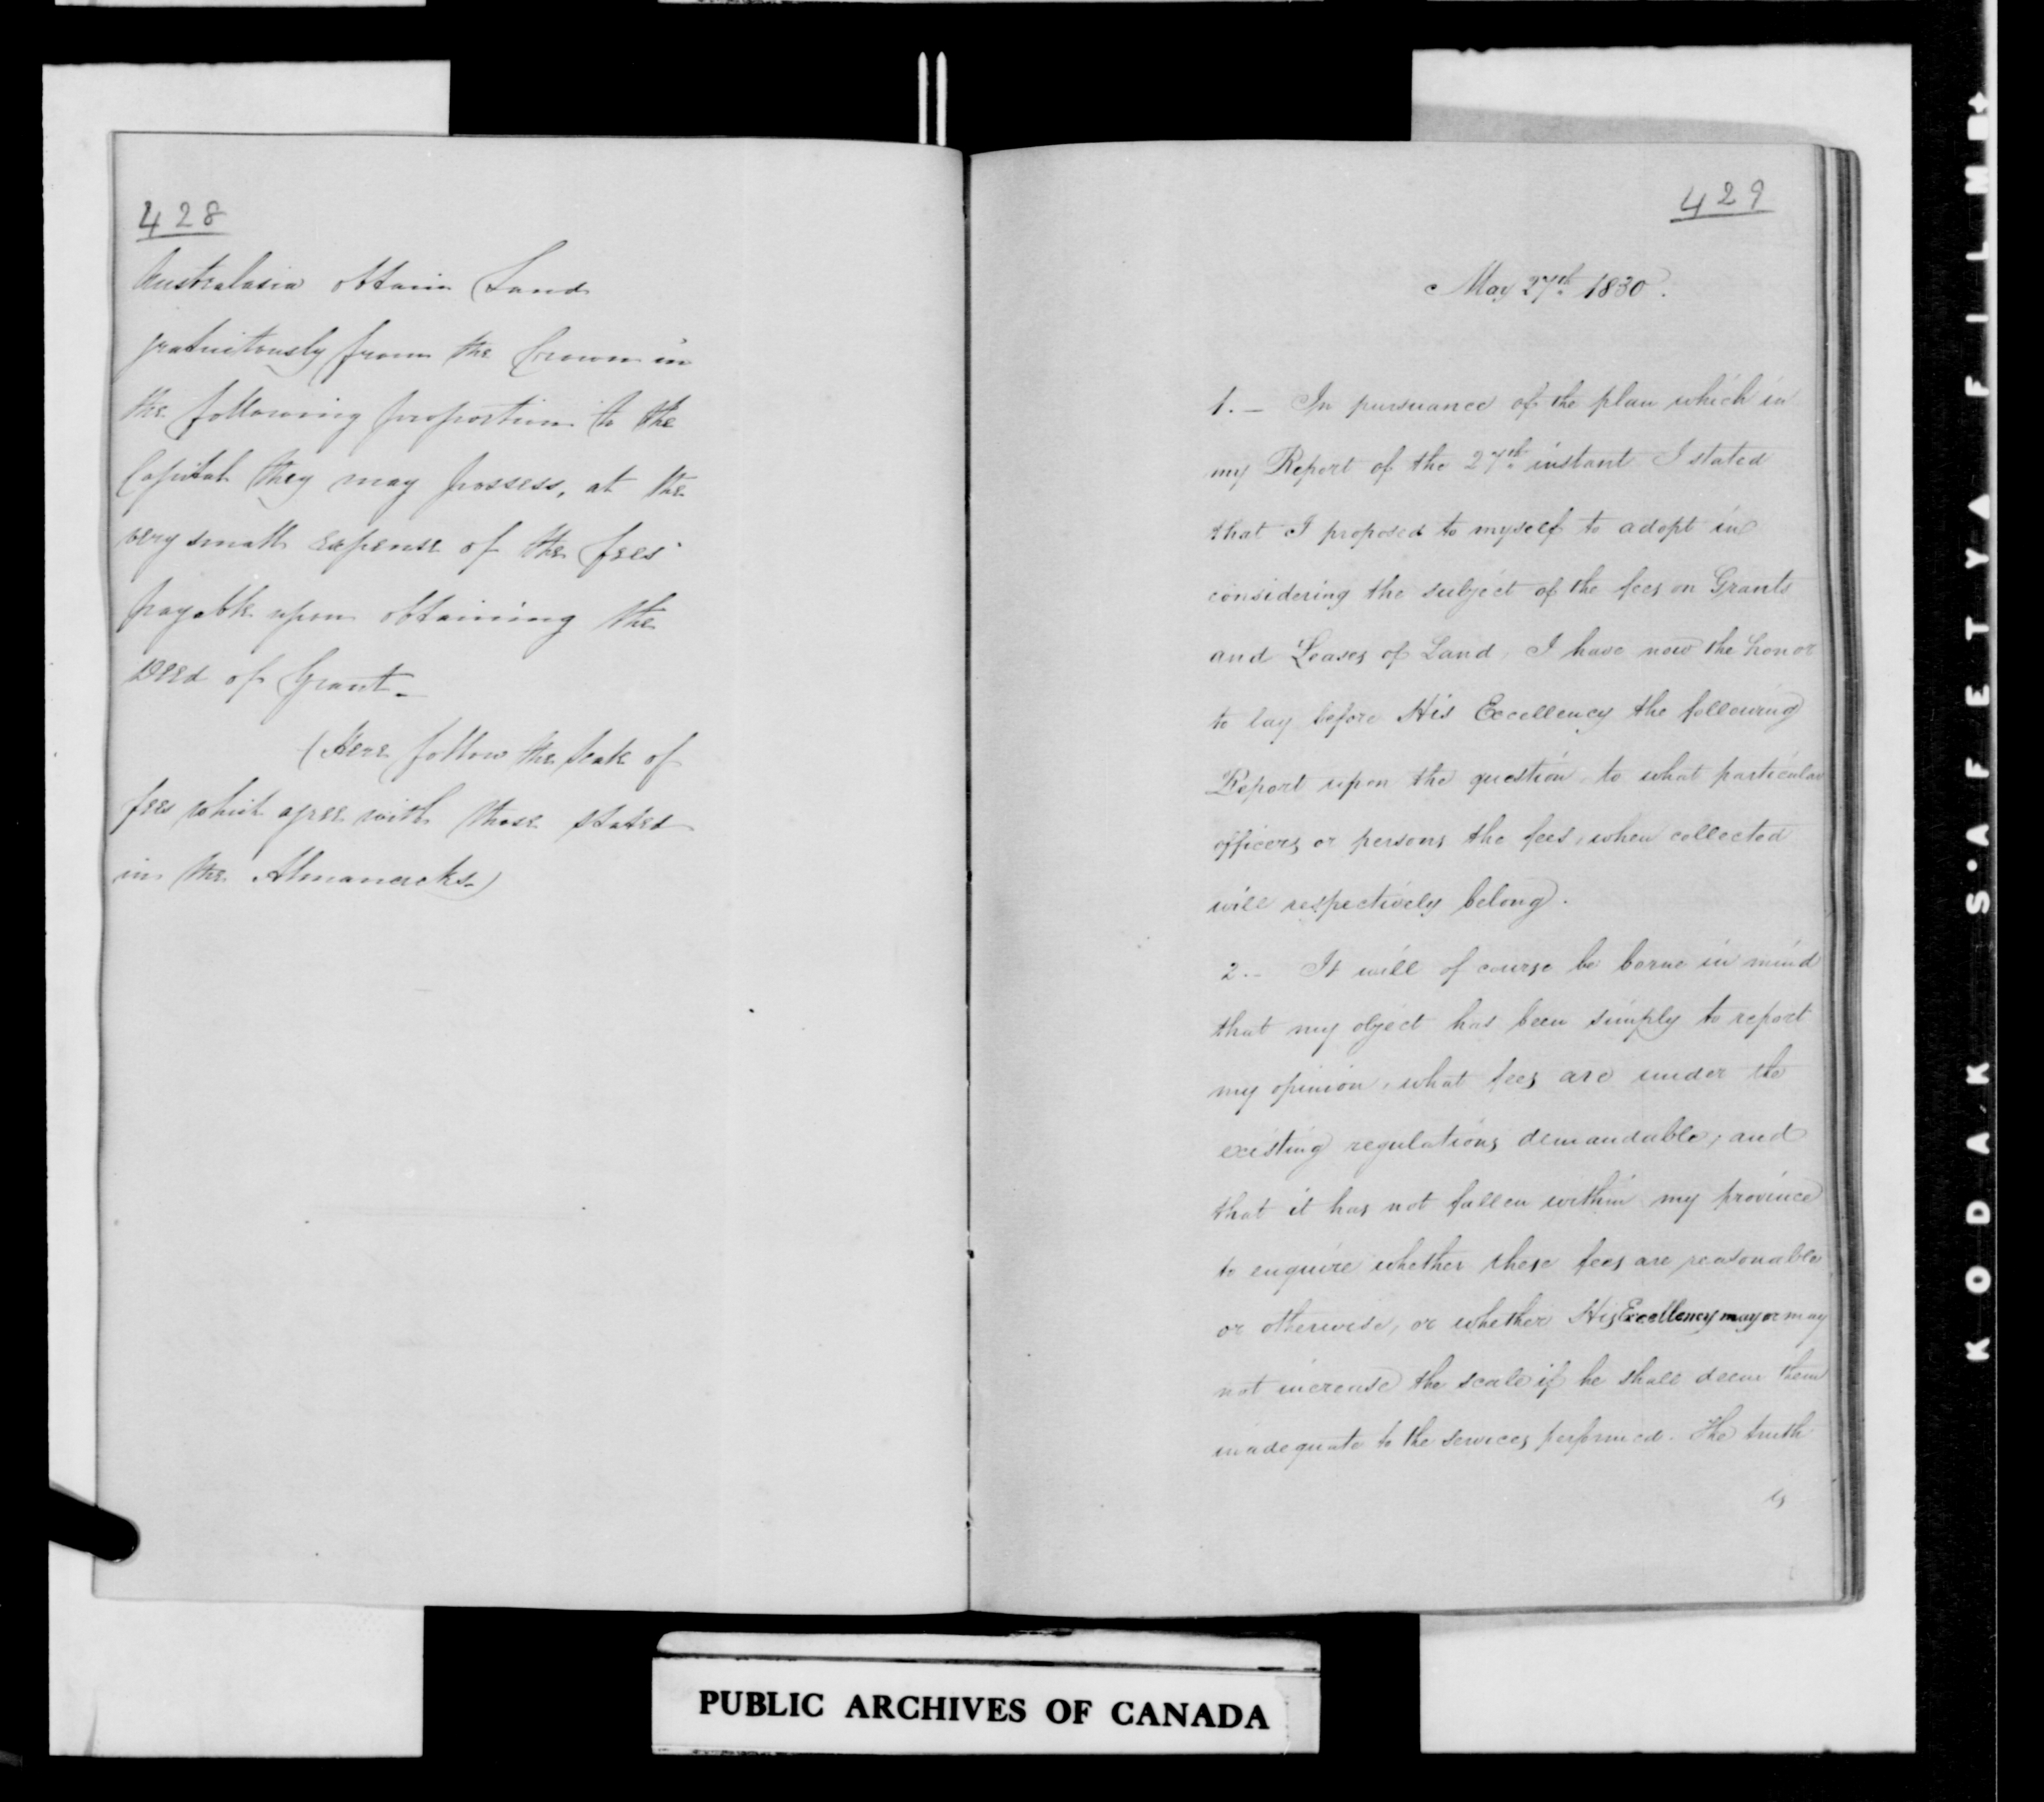 428
Australasia obtain Land
gratuitously from the Crown in
the following proportion to the
Capital they may possess, at the
very small expense of the fees
payable upon obtaining the
Deed of Grant -
(Here follow the Scale of
fees which agree with those stated
in the Almanacks -)
429
May 27th 1830.
1. - In pursuance of the plan which in
my Report of the 27th instant I stated
that I proposed to myself to adopt in
considering the subject of the fees on Grants
and Leases of Land, I have now the honor
to lay before His Excellency the following
Report upon the question, to what particular
officers or persons the fees, when collected
will respectively belong.
2. - It will of course be borne in mind
that my object has been simply to report
my opinion, what fees are under the
existing regulations demandable; and
that it has not fallen within my province
to enquire whether these fees are reasonable
or otherwise, or whether His Excellency may or may
not increase the scale if he shall deem them
inadequate to the services performed. The truth
is
PUBLIC ARCHIVES OF CANADA
KODAK SAFETY FILM